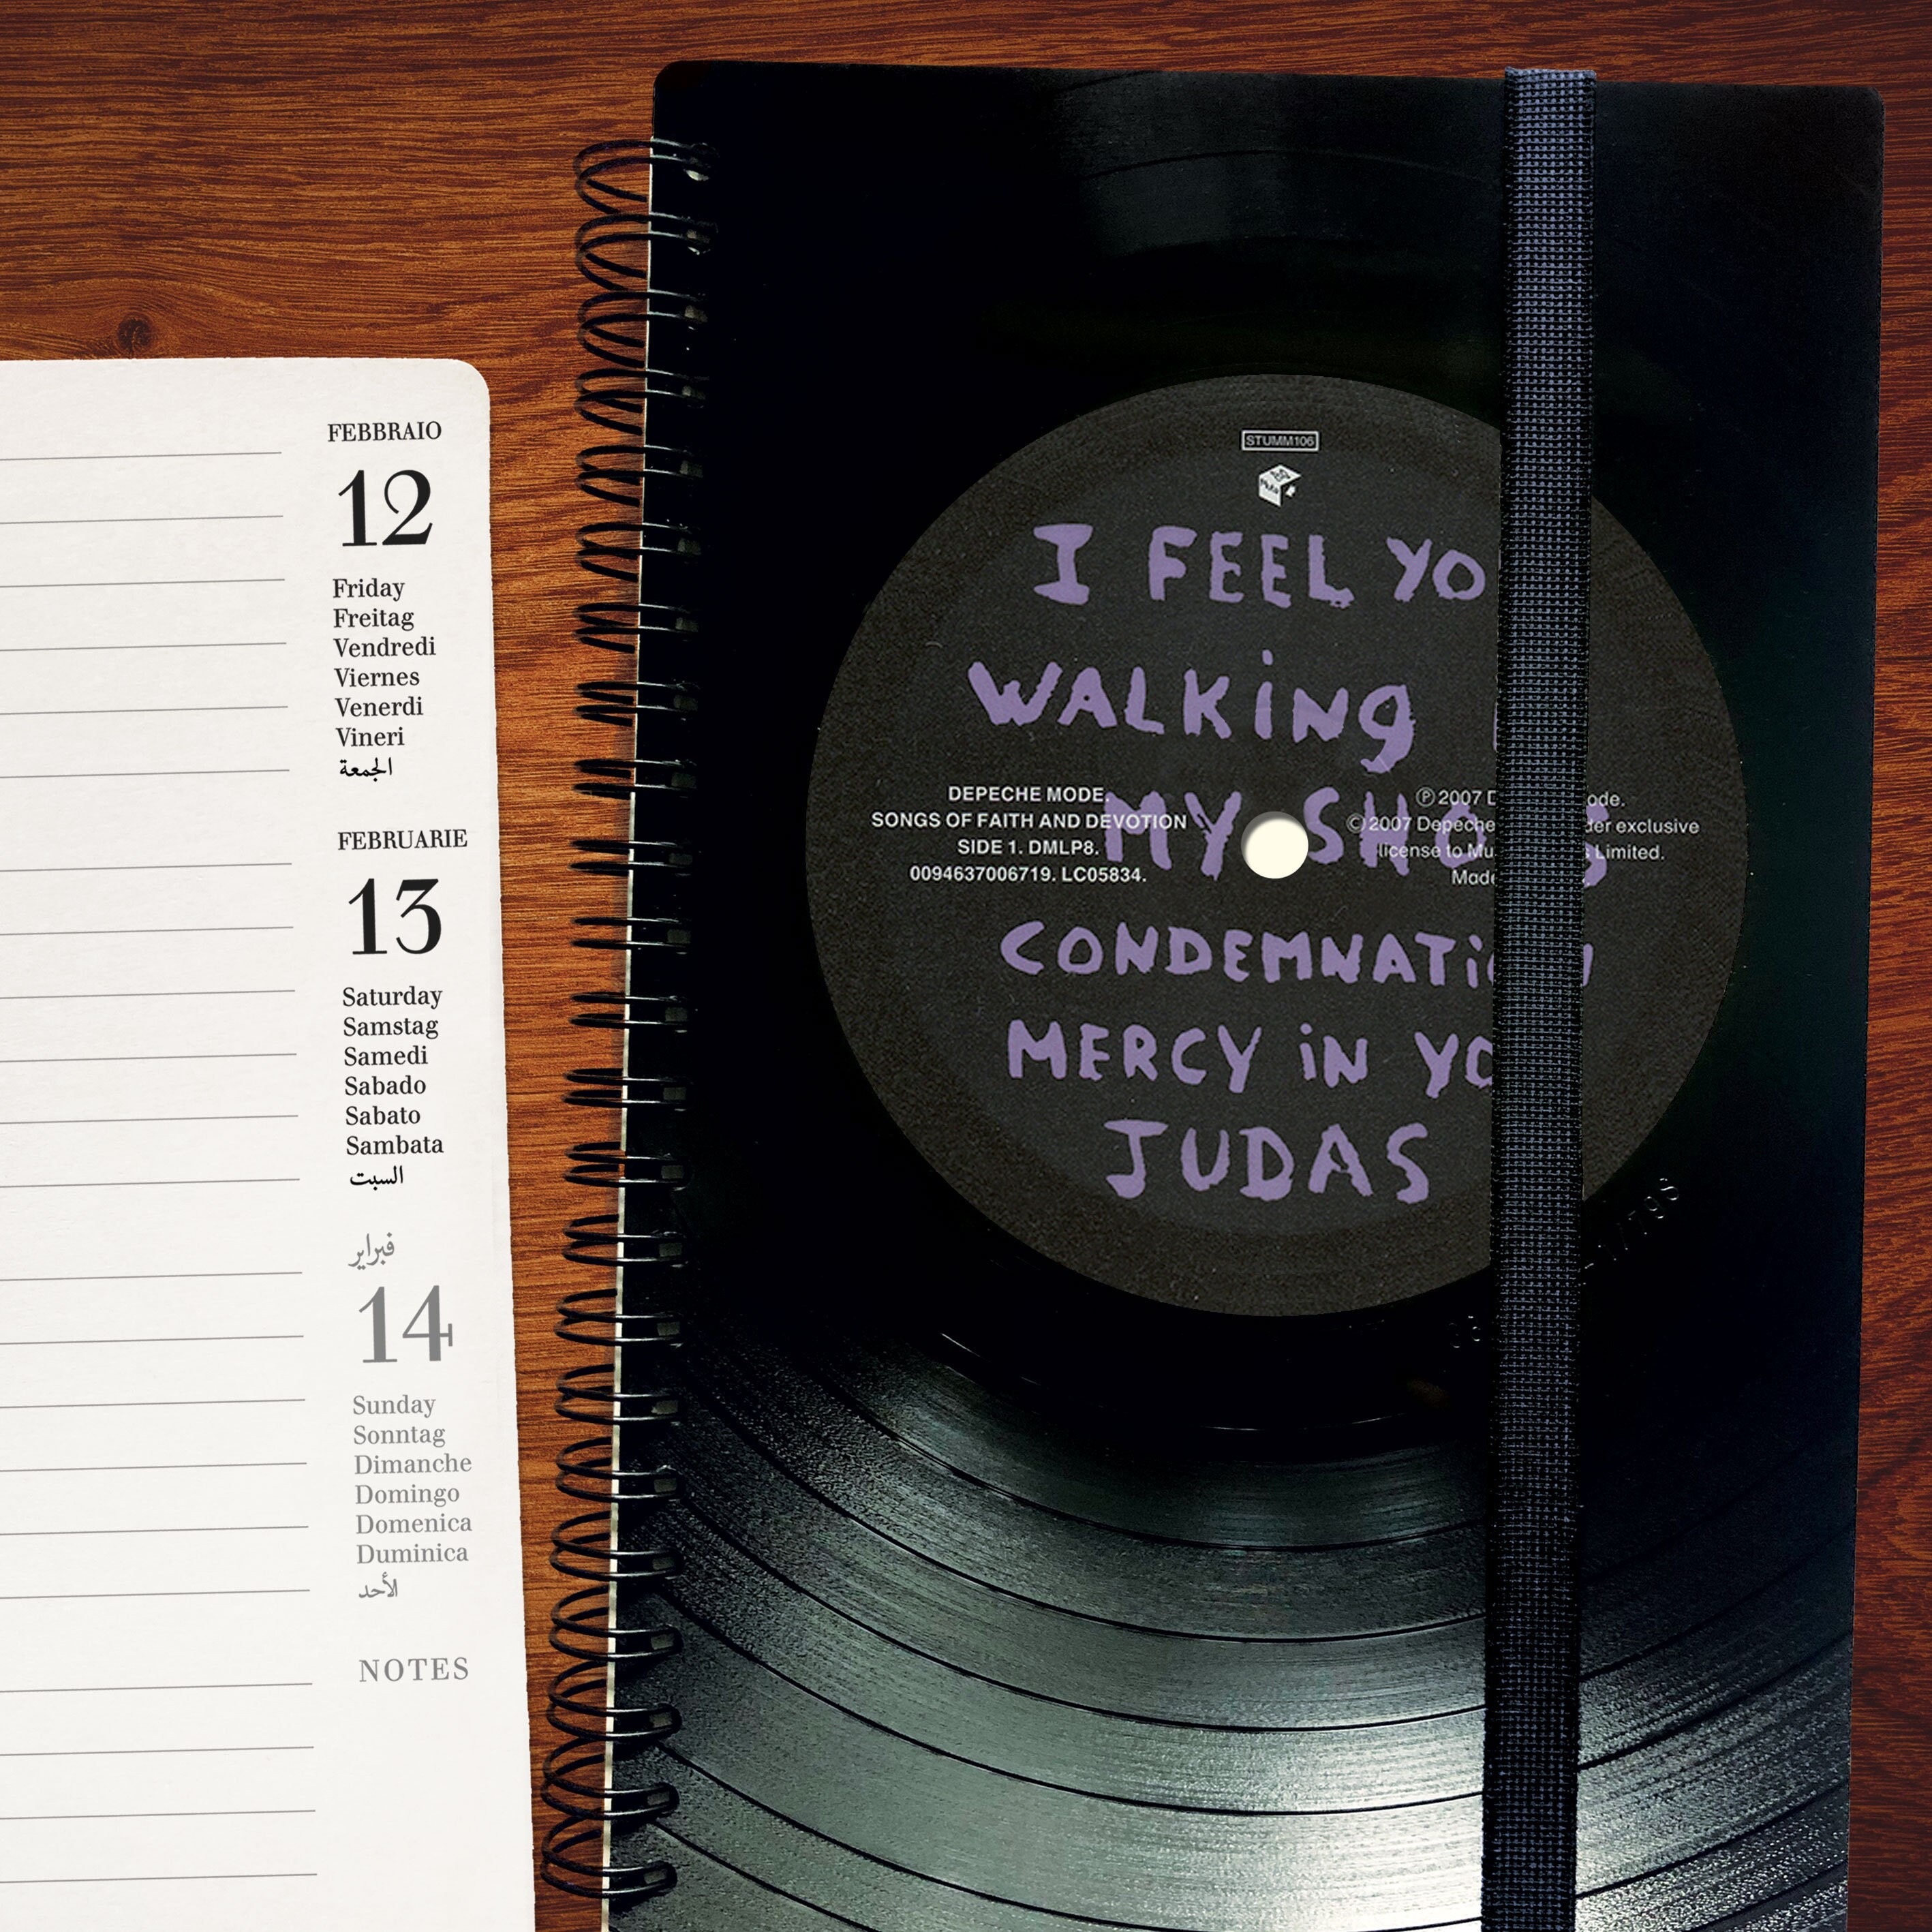 FEBBRAIO
12
Friday
Freitag
Vendredi
Viernes
Venerdi
Vineri
الجمعة
FEBRUARIE
13
Saturday
Samstag
Samedi
Sabado
Sabato
Sambata
السبت
فبراير
14
Sunday
Sonntag
Dimanche
Domingo
Domenica
Duminica
الأحد
NOTES
STUMM106
Mute
I FEEL YO
WALKiNg
MY SHOES
CONDEMNATiON
MERCY iN YO
JUDAS
DEPECHE MODE.
SONGS OF FAITH AND DEVOTION
SIDE 1. DMLP8.
0094637006719. LC05834.
℗ 2007 D ode.
© 2007 Depeche der exclusive
license to Mu s Limited.
Made